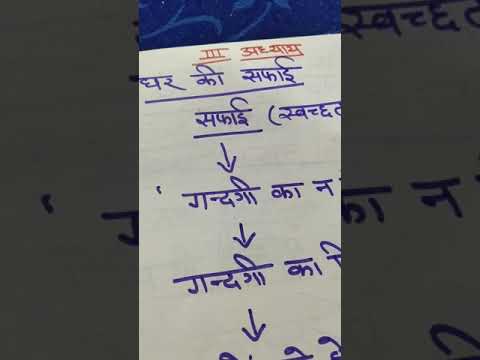 III अध्याय
घर की सफाई
सफाई (स्वच्छत
↓
' गन्दगी का न
↓
गन्दगी का
↓